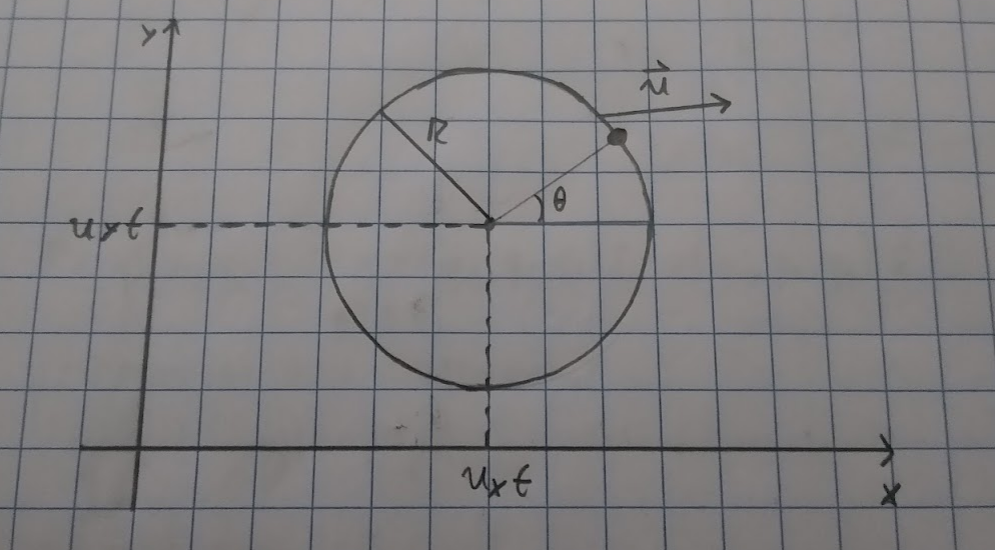 y
u⃗
R
θ
uₓt
uₓt
x